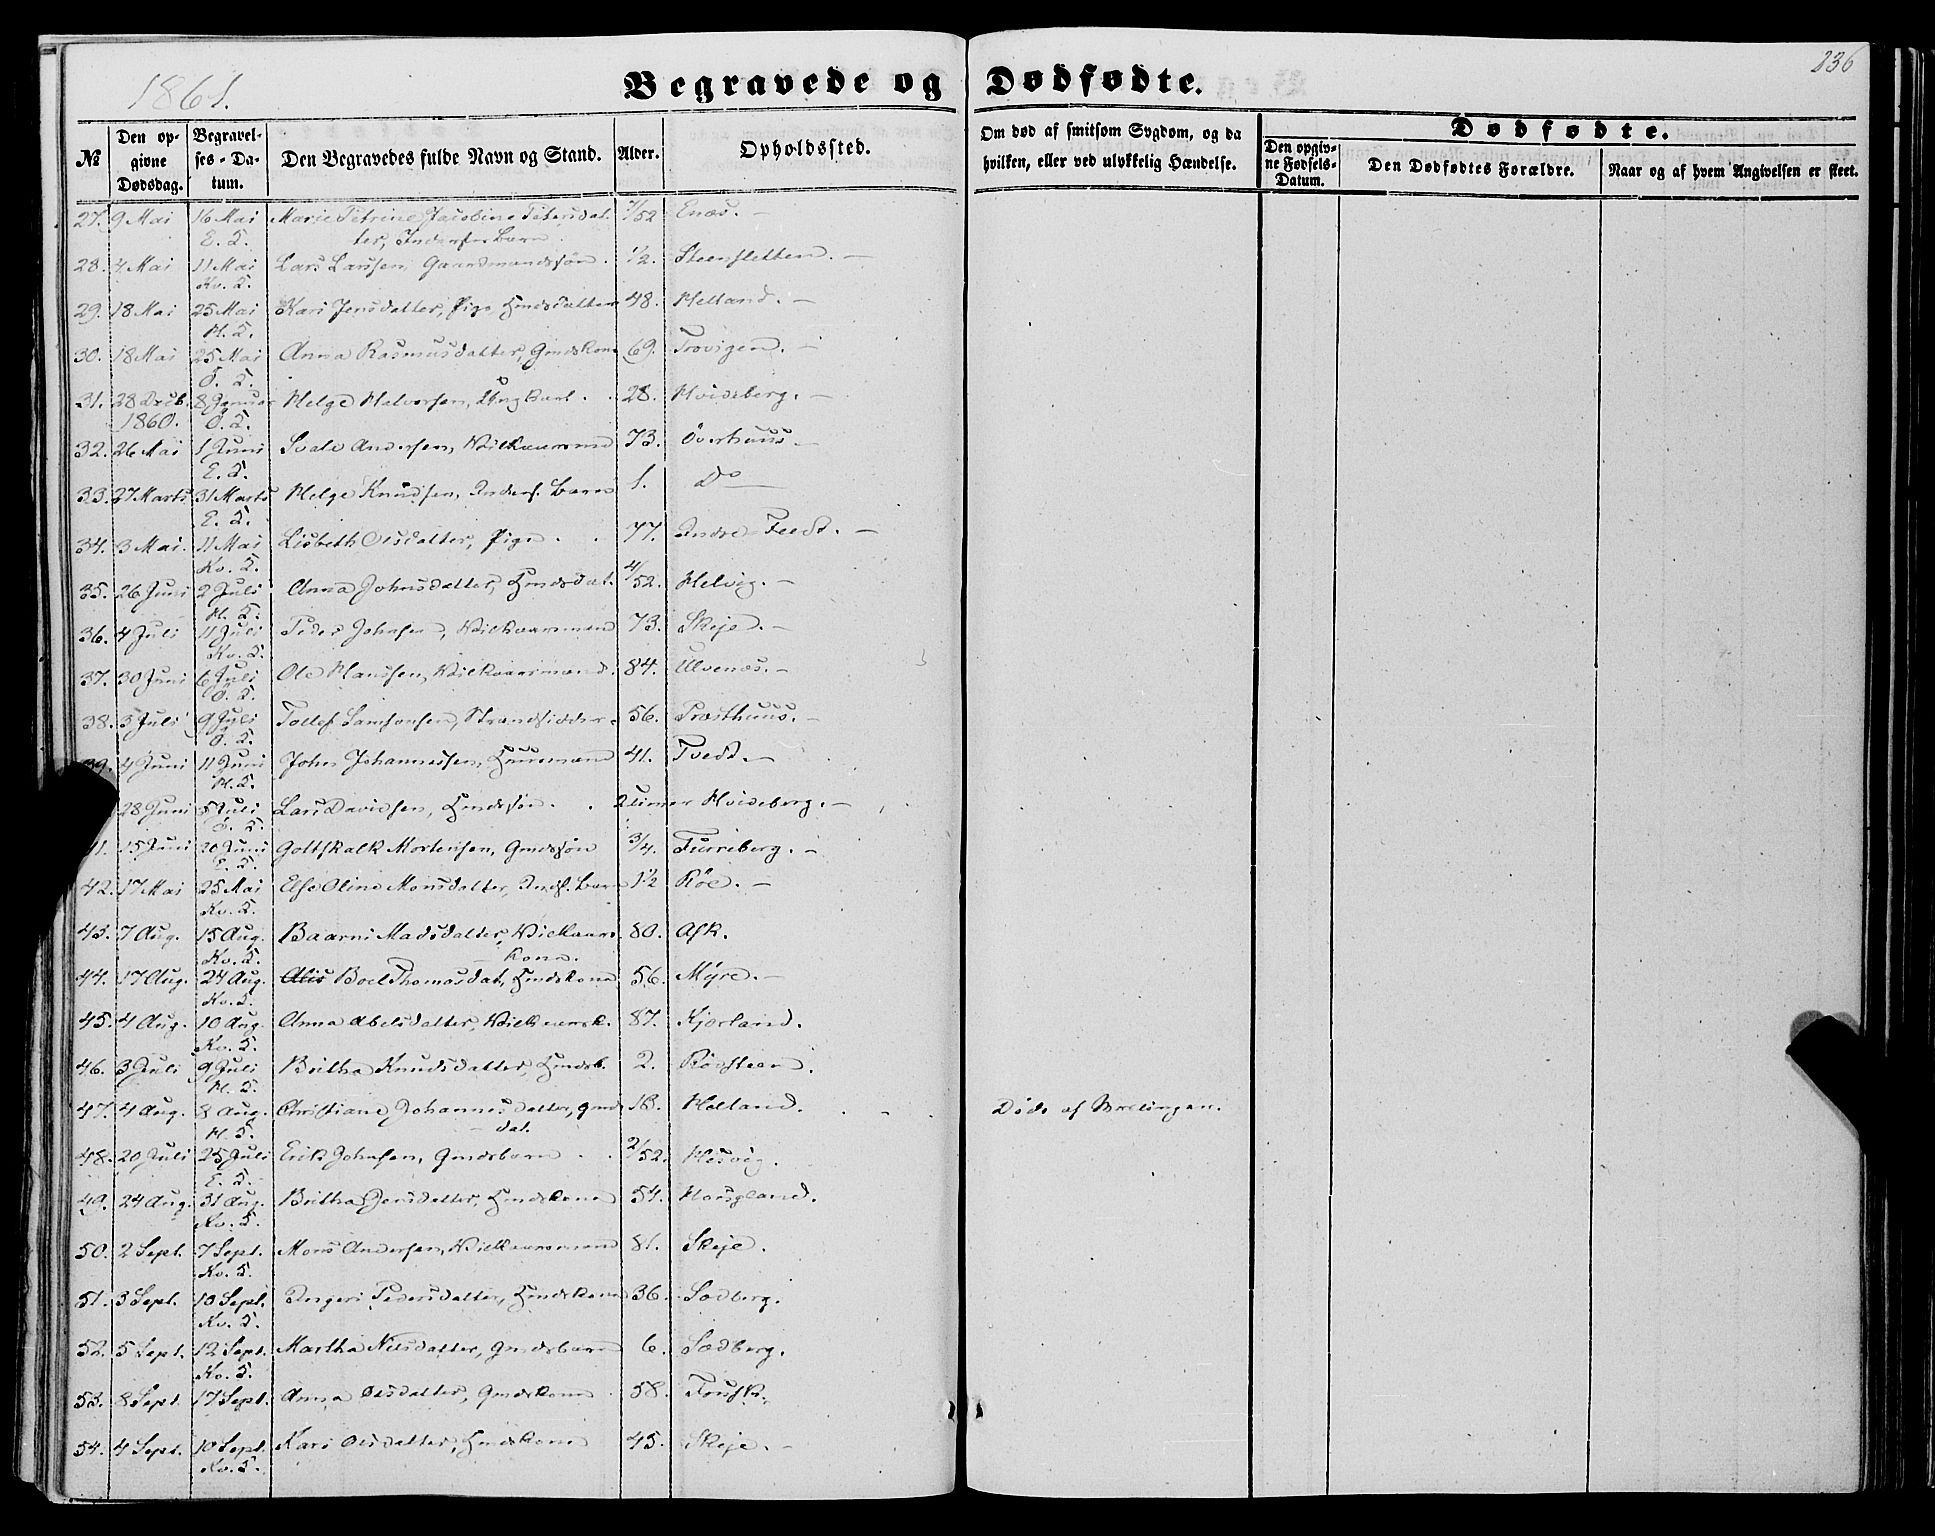 1861.
Begravede og Dødfødte.
236
№
Den opgivne Dødsdag.
Begravelses-Datum.
Den Begravedes fulde Navn og Stand.
Alder.
Opholdssted.
Om død af smitsom Sygdom, og da hvilken, eller ved ulykkelig Hændelse.
Dødfødte.
Den opgivne Fødsels-Datum.
Den Dødfødtes Forældre.
Naar og af hvem Angivelsen er skeet.
27. 9 Mai 16 Mai Marie Petrine Jacobine Petersdat- 7/52 Enæs. –
E. K. ter, Inderstes Barn
28. 4 Mai 11 Mai Lars Larssen, Gaardmandssøn. 1/2. Steensletten. –
Kv. K.
29. 18 Mai 25 Mai Kari Jensdatter, Pige, Hmdsdatter 48. Helland. –
H. K.
30. 18 Mai 25 Mai Anna Rasmusdatter, Gmdskone 69. –
Ø. K.
31. 28 Decb. 8 Januar Helge Halvorsen, Ungkarl. 28. Hvideberg. –
1860. Ø. K.
32. 26 Mai 1 Juni Andersen, Vilkaarsmd 73. Överhuus –
E. K.
33. 27 Marts 31 Marts Helge Knudsen, Inderst. Barn 1. Do
E. K.
34. 3 Mai. 11 Mai Lisbeth Olsdatter, Pige 77. Indre –
Kv. K.
35. 26 Juni 2 Juli Anna Johnsdatter, Hmdsdat. 4/52. Helvig. –
H. K.
36. 4 Juli 11 Juli Peder Johnsen, Vilkaarsmand 73. Skeje. –
Kv. K.
37. 30 Juni 6 Juli Ole Hanssen, Vilkaarsmand. 84. Ulvenæs. –
Ø. K.
38. 3 Juli 9 Juli Tollef Samsonsen, Strandsidder 56. Præsthuus. –
Ø. K.
39. 4 Juni 11 Juni John Johannessen, Huusmand 41. Tvedt. –
H. K.
28 Juni 5 Juli Lars Davidsen, Hmdssøn. 2 timer Hvideberg. –
Ø. K.
41. 15 Juni 20 Juni Gottskalk Mortensen, Gmdssøn 3/4. Furreberg. –
E. K.
42. 17 Mai 25 Mai Else Oline Monsdatter, Indst. Barn 1 1/2 Röe. –
Kv. K.
43. 7 Aug. 15 Aug. Baarni Madsdatter, Vilkaars- 80. Ask.
Kv. K. kone.
44. 17 Aug. 24 Aug. Boel Thomasdat, Hmdskone 56. Myre. –
Kv. K.
45. 4 Aug. 10 Aug. Anna Abelsdatter, Vilkaarsk. 87. Kjerland.
Kv. K.
46. 3 Juli 9 Juli Britha Knudsdatter, Hmdsb. 2. Rödsteen.
H. K.
47. 4 Aug. 8 Aug. Christiane Johannesdatter, Gmds 18. Helland. Döde af
H. K. dat.
48. 20 Juli 25 Juli Erik Johnsen, Gmdsbarn 2/52. Hesvig.
E. K.
49. 24 Aug. 31 Aug. Britha Jensdatter, Hmdskone 54. Hougland.
Kv. K.
50. 2 Sept. 7 Sept. Mons Andersen, Vilkaarsmand 81. Skeje.
Kv. K.
51. 3 Sept. 10 Sept. Ingeri Pedersdatter, Hmdskone 36. Sædberg.
Kv. K.
52. 5 Sept. 12 Sept. Martha Nilsdatter, Gmdsbarn 6. Sædberg.
Kv. K.
53. 8 Sept. 17 Sept. Anna Olsdatter, Gmdskone 58.
54. 4 Sept. 10 Sept. Kari Olsdatter, Hmdskone 45. Skeje. –
Kv. K.